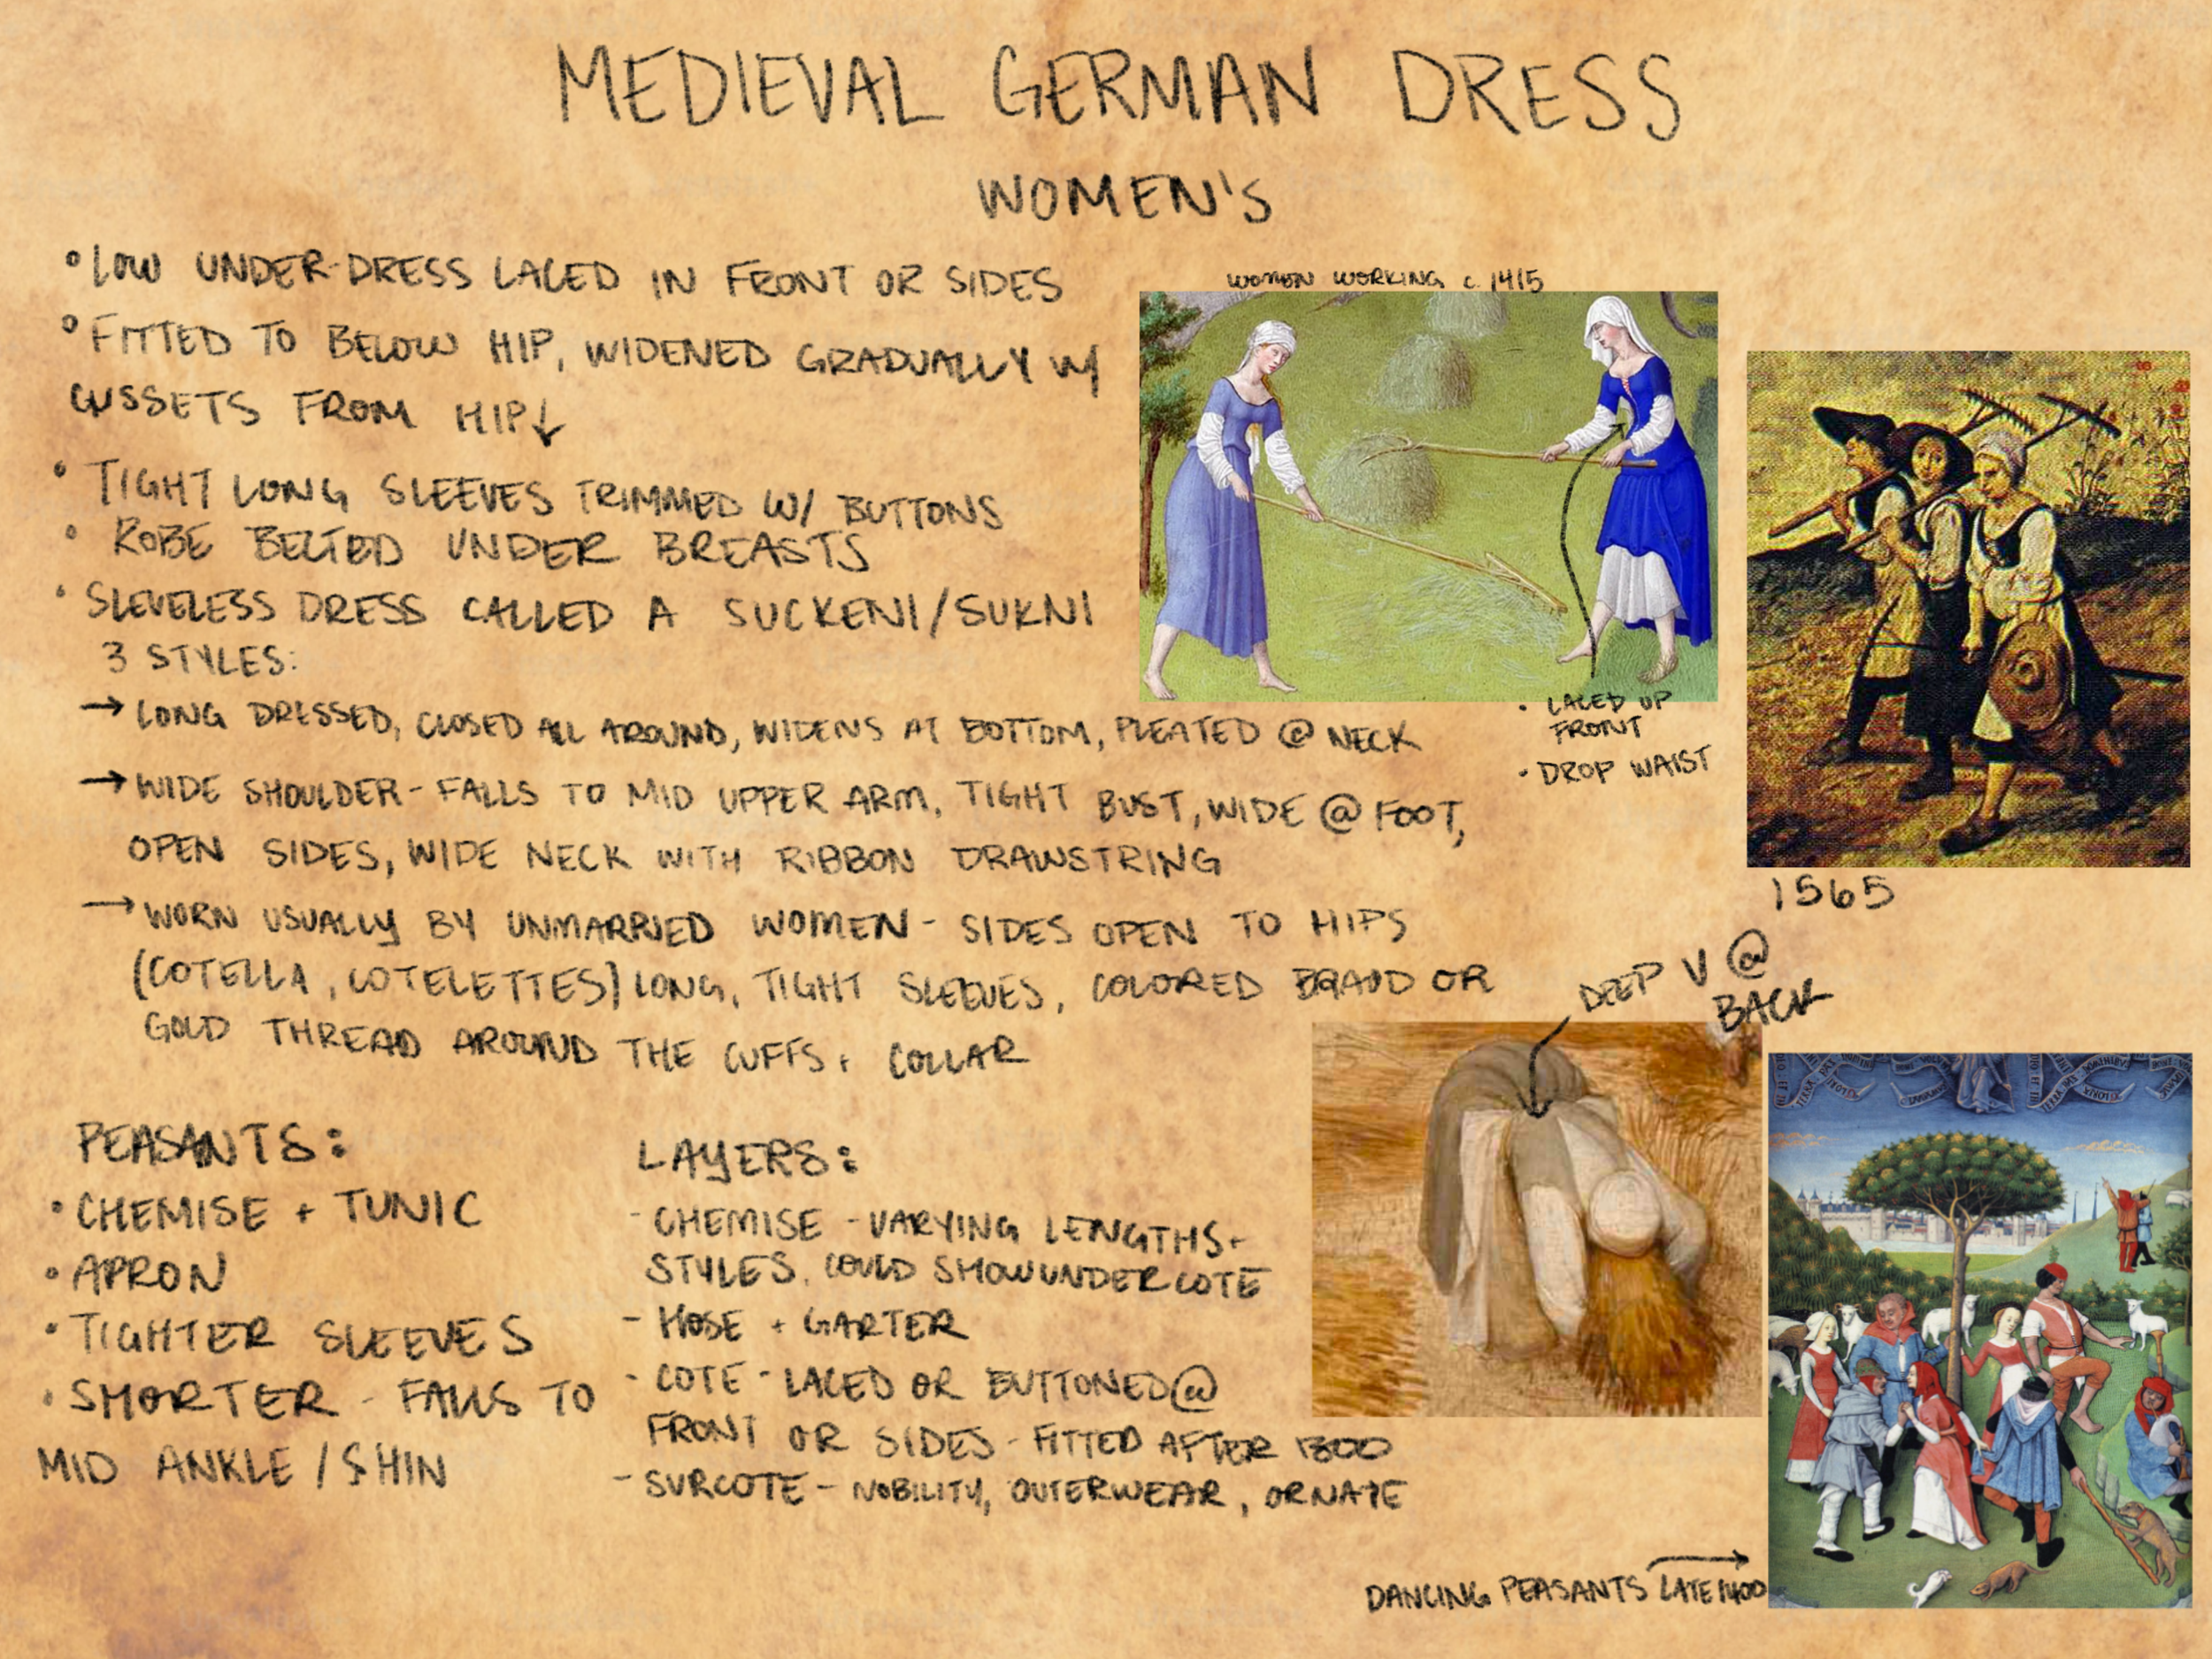 MEDIEVAL GERMAN DRESS
WOMEN'S
•LOW UNDER-DRESS LACED IN FRONT OR SIDES
•FITTED TO BELOW HIP, WIDENED GRADUALLY W/
GUSSETS FROM HIP↓
• TIGHT LONG SLEEVES TRIMMED W/ BUTTONS
• ROBE BELTED UNDER BREASTS
• SLEVELESS DRESS CALLED A SUCKENI/SUKNI
3 STYLES:
→ LONG DRESSED, CLOSED ALL AROUND, WIDENS AT BOTTOM, PLEATED @ NECK
→ WIDE SHOULDER - FALLS TO MID UPPER ARM, TIGHT BUST, WIDE @ FOOT,
OPEN SIDES, WIDE NECK WITH RIBBON DRAWSTRING
→ WORN USUALLY BY UNMARRIED WOMEN - SIDES OPEN TO HIPS
(COTELLA, COTELETTES) LONG, TIGHT SLEEVES, COLORED BRAID OR
GOLD THREAD AROUND THE CUFFS + COLLAR
WOMEN WORKING c. 1415
• LACED UP
FRONT
• DROP WAIST
1565
DEEP V @
BACK
PEASANTS:
• CHEMISE + TUNIC
• APRON
• TIGHTER SLEEVES
• SHORTER - FALLS TO
MID ANKLE / SHIN
LAYERS:
- CHEMISE - VARYING LENGTHS +
STYLES, COULD SHOW UNDER COTE
- HOSE + GARTER
- COTE - LACED OR BUTTONED @
FRONT OR SIDES - FITTED AFTER 1300
- SURCOTE - NOBILITY, OUTERWEAR, ORNATE
DANCING PEASANTS LATE 1400